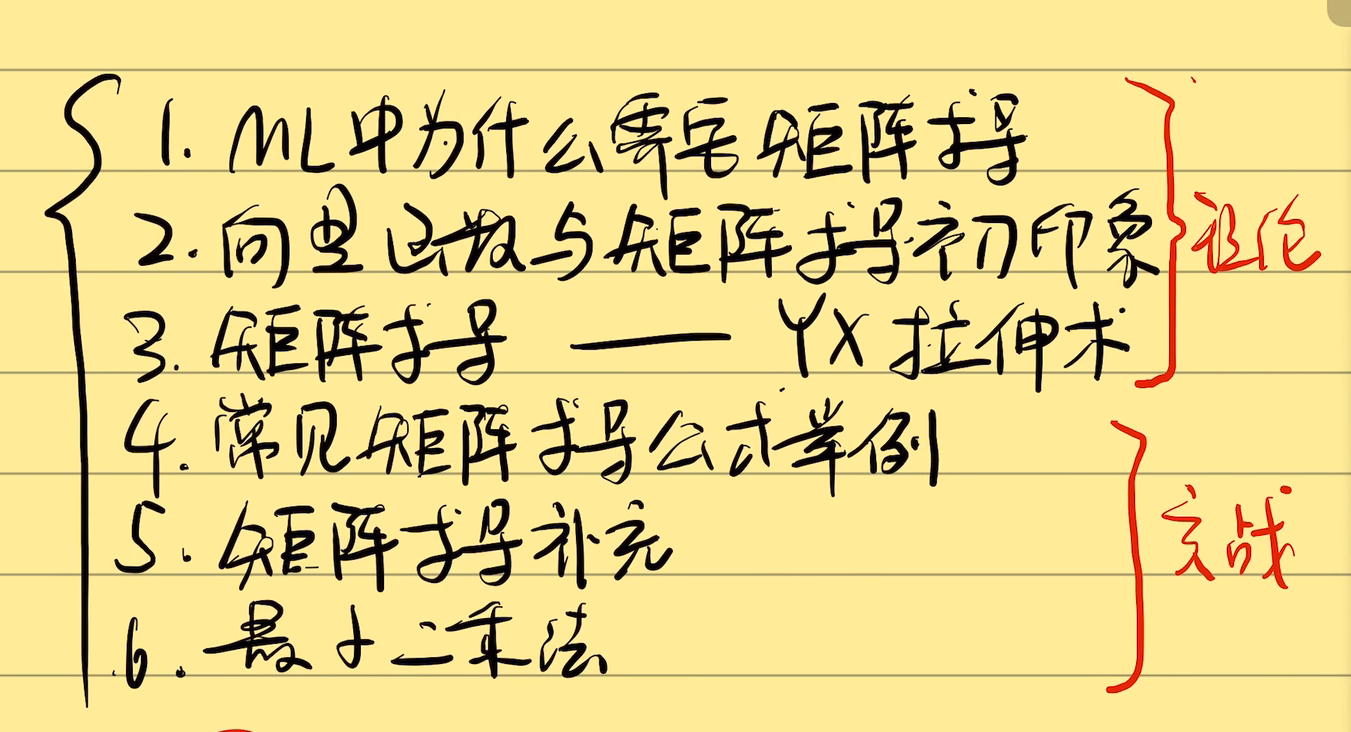 1. ML中为什么需要矩阵求导
2. 向量函数与矩阵求导初印象
3. 矩阵求导 —— YX 拉伸术
理论
4. 常见矩阵求导公式举例
5. 矩阵求导补充
6. 最小二乘法
实战